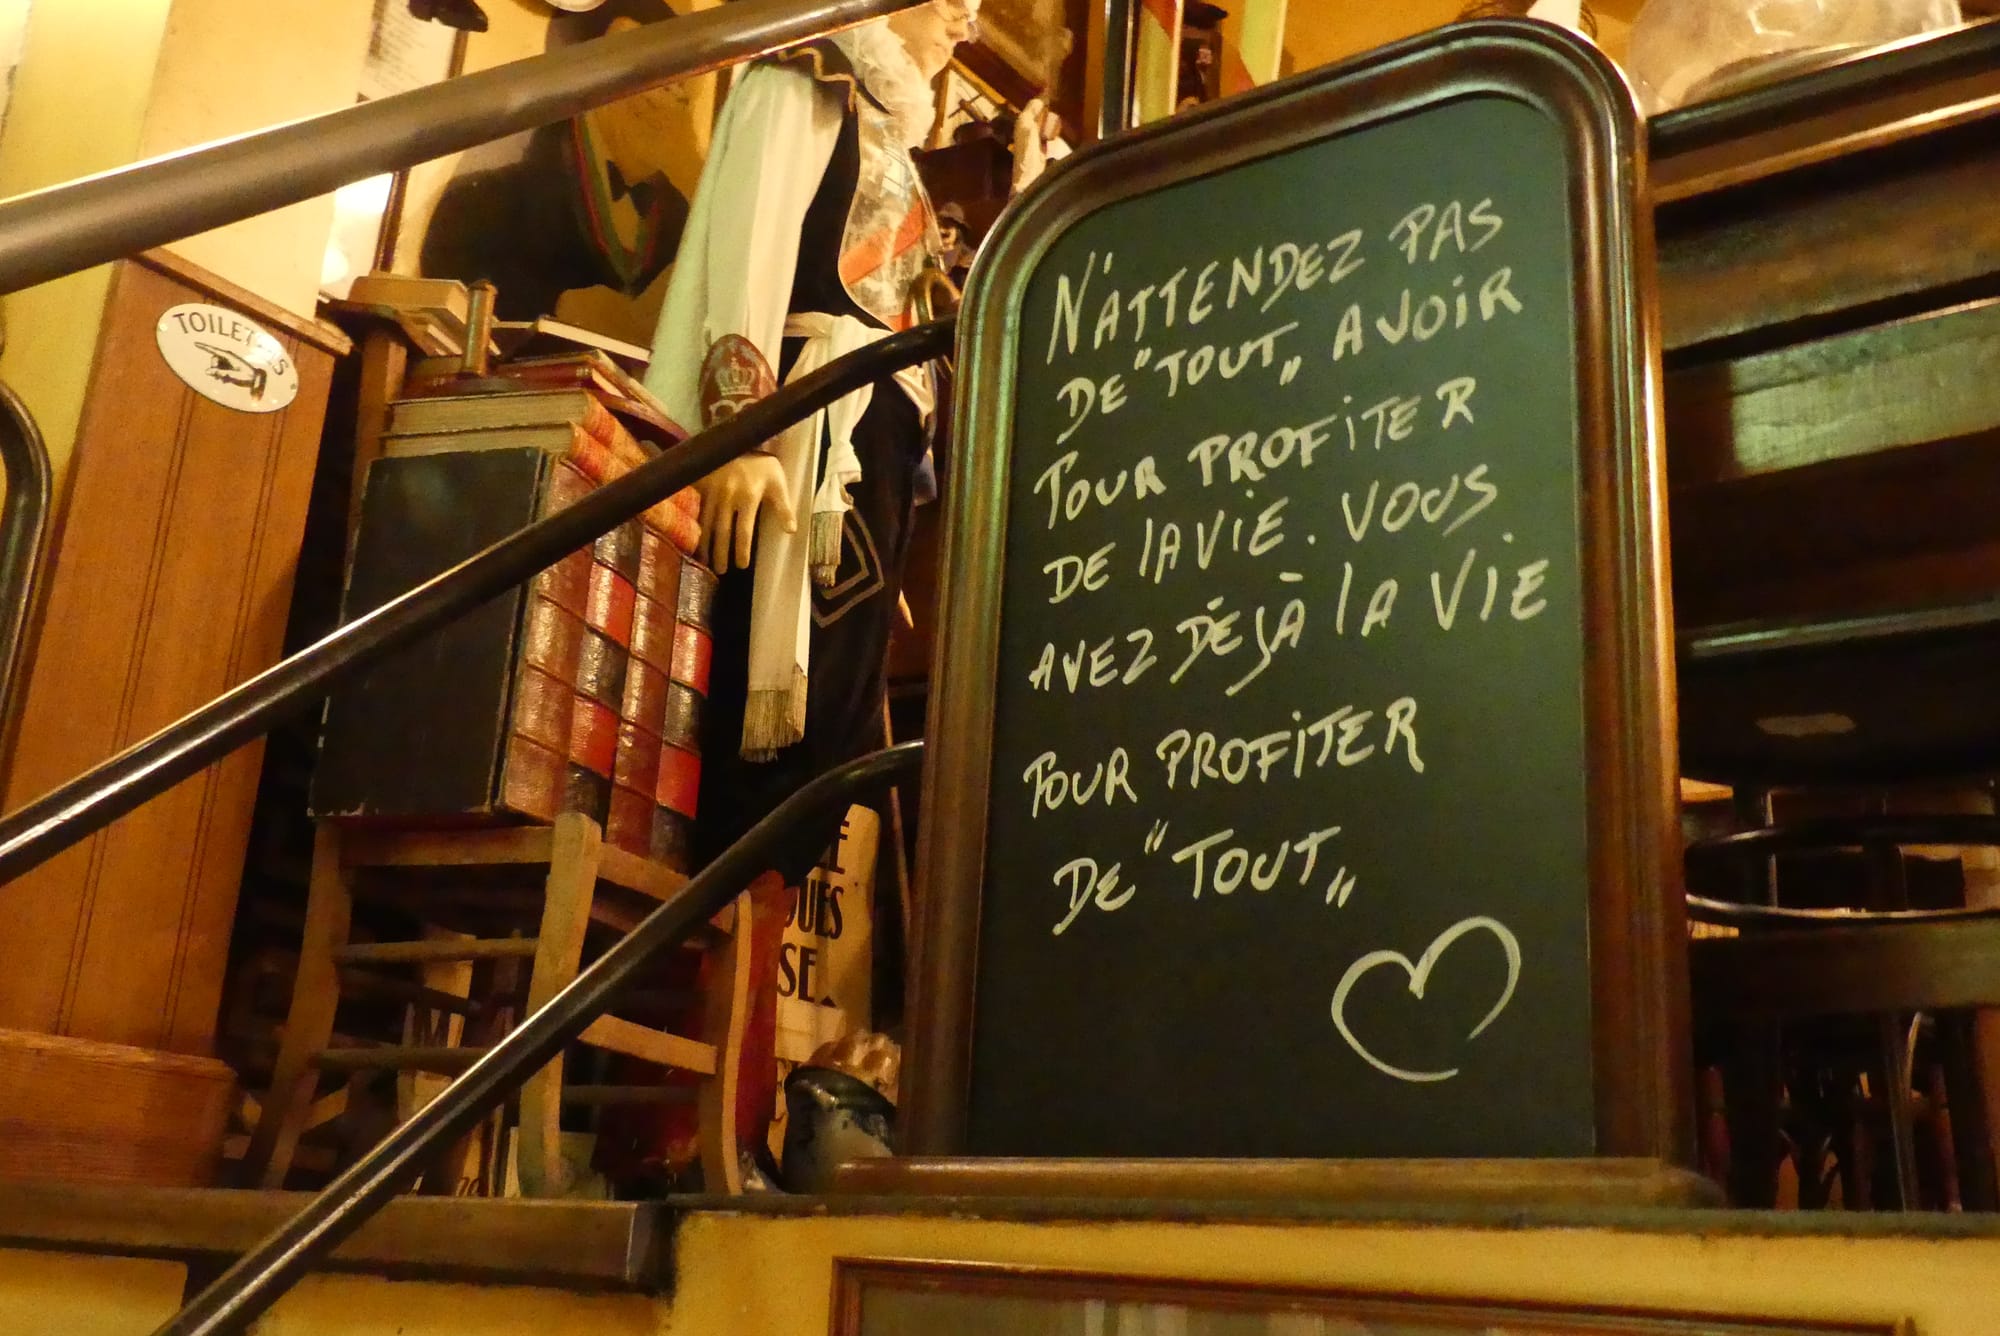 TOILETTES
N'ATTENDEZ PAS
DE "TOUT„ AVOIR
POUR PROFITER
DE LA VIE. VOUS
AVEZ DÉJÀ LA VIE
POUR PROFITER
DE "TOUT„